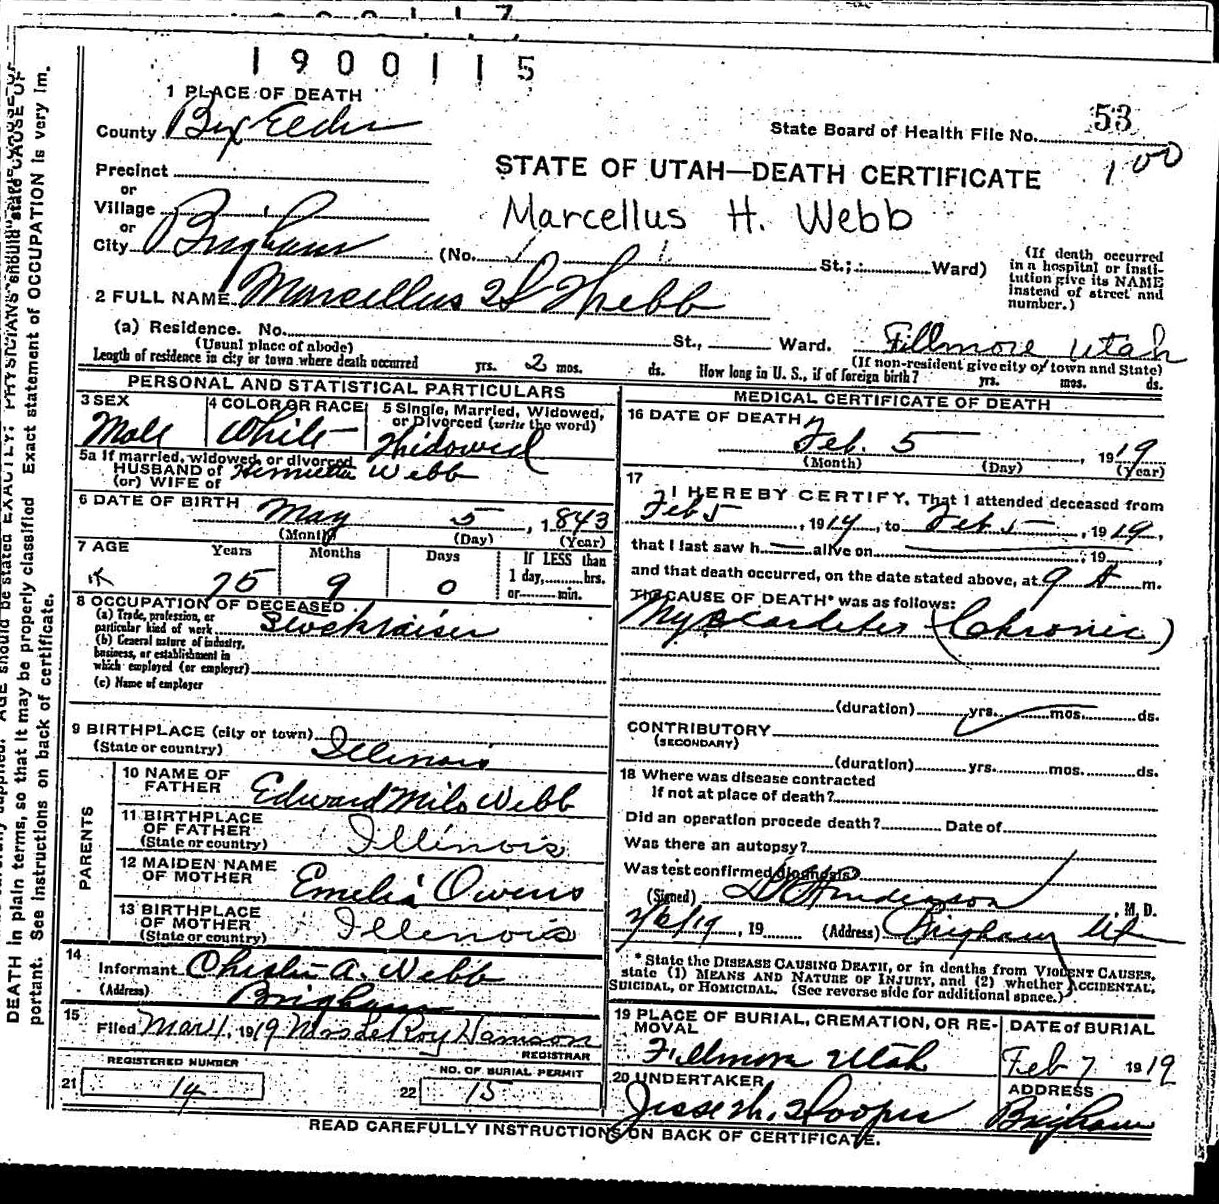 1900117
1900115
1 PLACE OF DEATH
County Box Elder
State Board of Health File No. 53
1 00
Precinct
or
Village
or
City Brigham
STATE OF UTAH—DEATH CERTIFICATE
Marcellus H. Webb
(No. St.; Ward)
(If death occurred
in a hospital or insti-
tution give its NAME
instead of street and
number.)
2 FULL NAME Marcellus H Webb
(a) Residence. No. St., Ward. Fillmore, Utah
(Usual place of abode) (If non-resident give city or town and State)
Length of residence in city or town where death occurred yrs. 2 mos. ds. How long in U. S., if of foreign birth? yrs. mos. ds.
PERSONAL AND STATISTICAL PARTICULARS
3 SEX
Male
4 COLOR OR RACE
White
5 Single, Married, Widowed,
or Divorced (write the word)
Widowed
5a If married, widowed, or divorced
HUSBAND of
(or) WIFE of Henrietta Webb
6 DATE OF BIRTH May 5, 1843
(Month) (Day) (Year)
7 AGE Years Months Days If LESS than
1 day, hrs.
or min.
75 9 0
8 OCCUPATION OF DECEASED
(a) Trade, profession, or
particular kind of work Stockraiser
(b) General nature of industry,
business, or establishment in
which employed (or employer)
(c) Name of employer
9 BIRTHPLACE (city or town)
(State or country) Illinois
PARENTS
10 NAME OF
FATHER Edward Milo Webb
11 BIRTHPLACE
OF FATHER
(State or country) Illinois
12 MAIDEN NAME
OF MOTHER Emelia Owens
13 BIRTHPLACE
OF MOTHER
(State or country) Illinois
14
Informant A. Webb
(Address) Brigham
15
Filed Mar 1, 1919 Mrs LeRoy
REGISTRAR
REGISTERED NUMBER
21 14
NO. OF BURIAL PERMIT
22 15
MEDICAL CERTIFICATE OF DEATH
16 DATE OF DEATH
Feb. 5, 1919
(Month) (Day) (Year)
17
I HEREBY CERTIFY, That I attended deceased from
Feb 5, 1919, to Feb. 5, 1919,
that I last saw h alive on , 19
and that death occurred, on the date stated above, at 9 A m.
The CAUSE OF DEATH* was as follows:
Myocarditis (Chronic)
(duration) yrs. mos. ds.
CONTRIBUTORY
(SECONDARY)
(duration) yrs. mos. ds.
18 Where was disease contracted
If not at place of death?
Did an operation procede death? Date of
Was there an autopsy?
Was test confirmed diagnosis?
(Signed) , M. D.
2/6/19, 19 (Address) Brigham Ut
* State the DISEASE CAUSING DEATH, or in deaths from VIOLENT CAUSES,
state (1) MEANS AND NATURE OF INJURY, and (2) whether ACCIDENTAL,
SUICIDAL, or HOMICIDAL. (See reverse side for additional space.)
19 PLACE OF BURIAL, CREMATION, OR RE-
MOVAL
Fillmore Utah
DATE of BURIAL
Feb 7 1919
20 UNDERTAKER
Jesse W. Hooper
ADDRESS
Brigham
READ CAREFULLY INSTRUCTIONS ON BACK OF CERTIFICATE.
AGE should be stated EXACTLY. PHYSICIANS should state CAUSE OF
DEATH in plain terms, so that it may be properly classified. Exact statement of OCCUPATION is very im-
portant. See instructions on back of certificate.